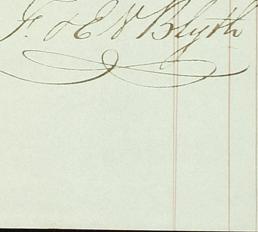 F. & E N Blyth